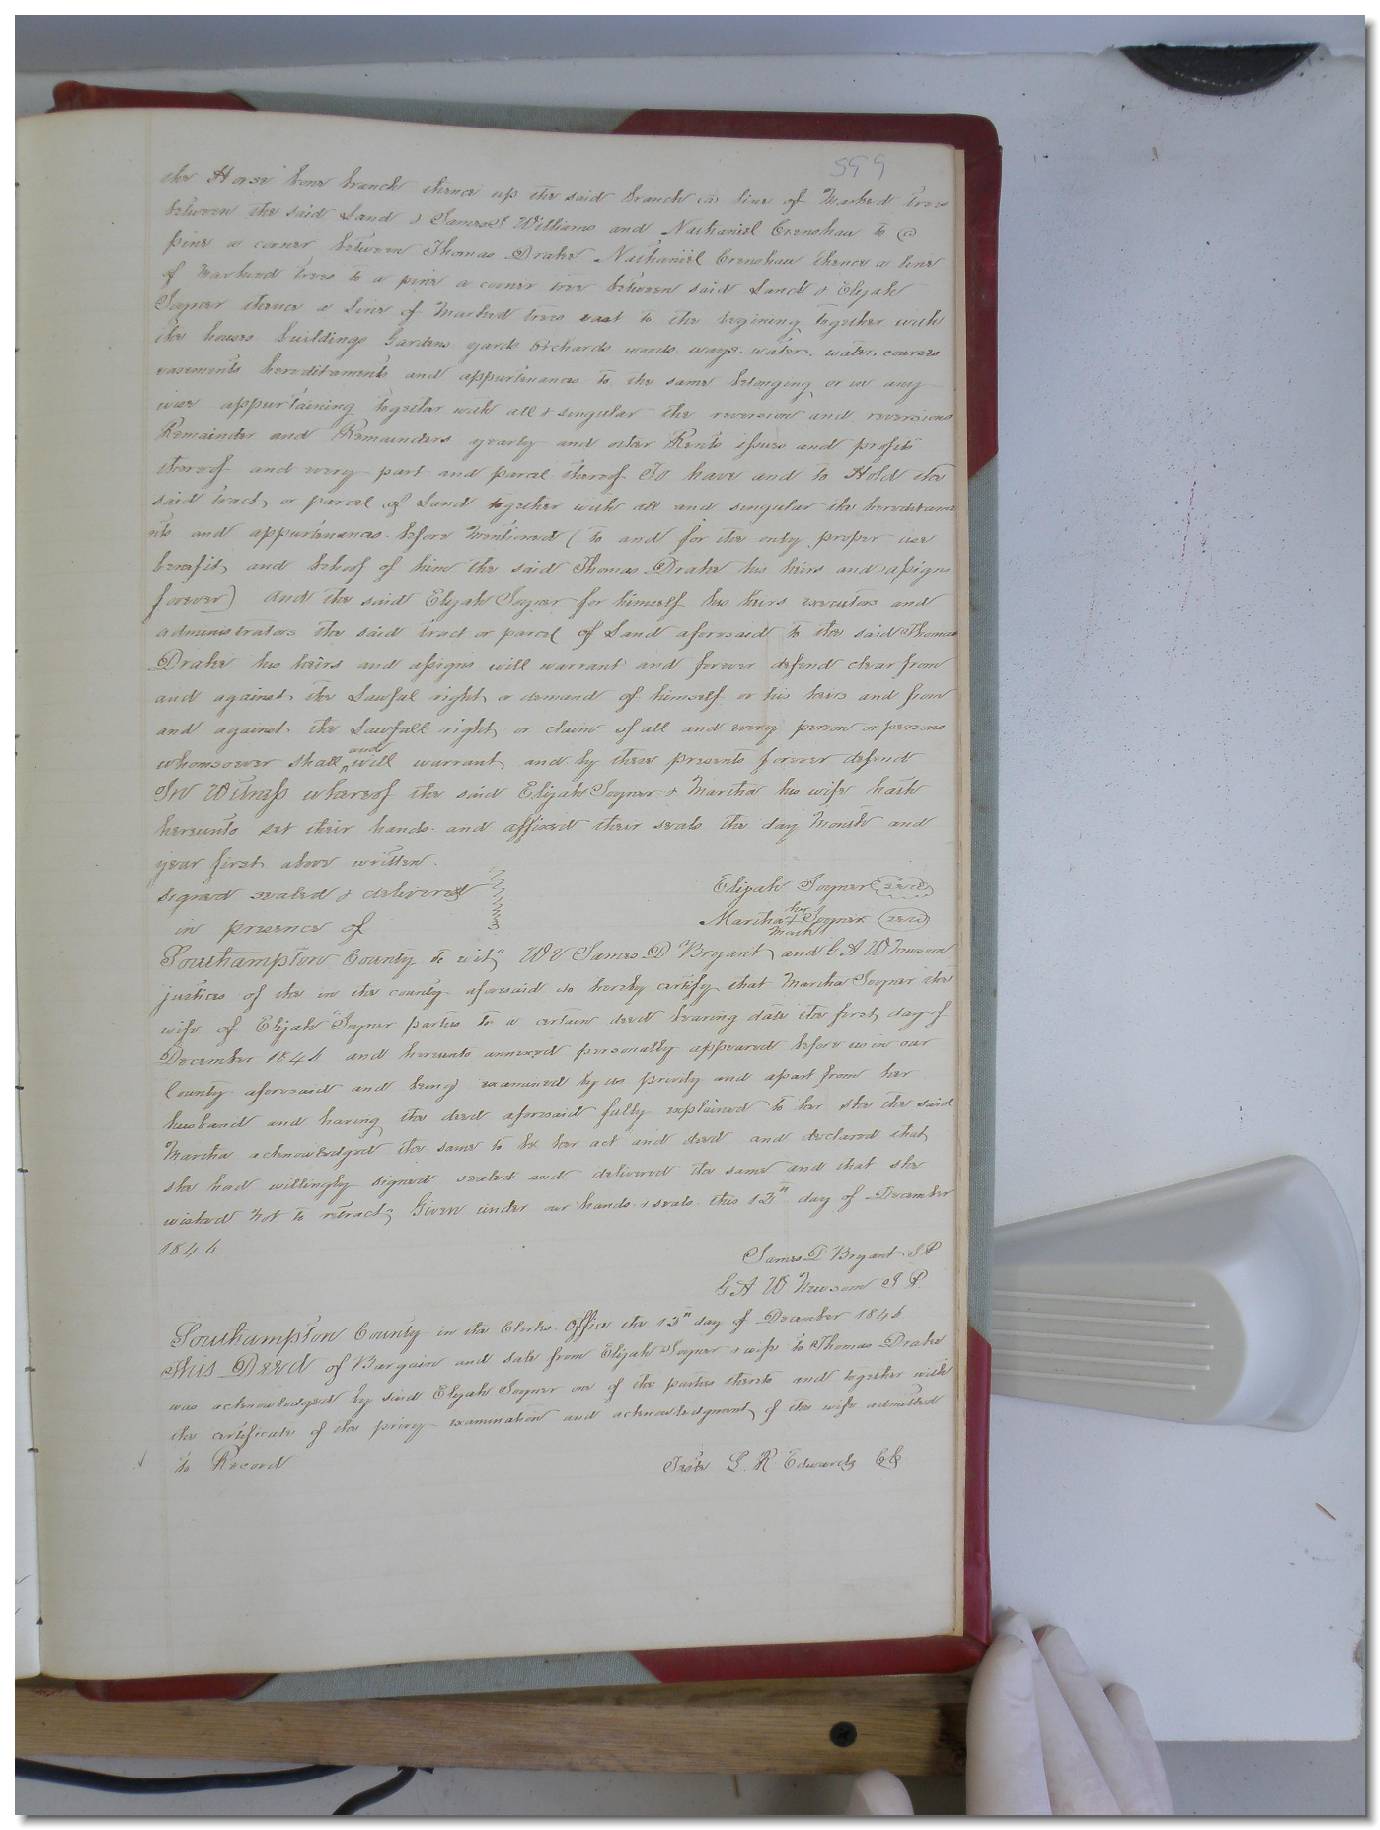 599
the Horse bone branch thence up the said branch a line of Marked trees
between the said Land & James Williams and Nathaniel Crenshaw to a
pine a corner between Thomas Drake Nathaniel Crenshaw thence a line
of marked trees to a pine a corner tree between said Land & Elijah
Joyner thence a line of Marked trees east to the begining together with
the houses buildings Gardens yards Orchards woods ways waters water courses
easements hereditaments and appurtenances to the same belonging or in any
wise appurtaining together with all & singular the reversion and reversions
Remainder and Remainders yearly and other Rents issues and profits
thereof and every part and parcel thereof To have and to Hold the
said tract or parcel of Land together with all and singular the hereditame
nts and appurtenances before Mentioned (to and for the only proper use
benefit and behoof of him the said Thomas Drake his heirs and assigns
forever) and the said Elijah Joyner for himself his heirs executors and
administrators the said tract or parcel of Land aforesaid to the said Thomas
Drake his heirs and assigns will warrant and forever defend clear from
and against the Lawful right or demand of himself or his heirs and from
and against the Lawfull right or claim of all and every person or persons
whomsoever shall and will warrant and by these presents forever defend
In Witness whereof the said Elijah Joyner & Martha his wife hath
hereunto set their hands and affixed their seals the day Month and
year first above written.
Signed sealed & delivered Elijah Joyner seal
in presence of Martha her + mark Joyner seal
Southampton County to wit, We James D Bryant and G A W Newsom
justices of the in the county aforesaid do hereby certify that Martha Joyner the
wife of Elijah Joyner parties to a certain deed bearing date the first day of
December 1846 and hereunto annexed personally appeared before us in our
County aforesaid and being examined by us privily and apart from her
husband and having the deed aforesaid fully explained to her she the said
Martha acknowledged the same to be her act and deed and declared that
she had willingly signed sealed and delivered the same and that she
wished not to retract Given under our hands & seals this 12" day of December
1846
James D Bryant J P
G A W Newsom J P.
Southampton County in the Clerks Office the 12" day of December 1846
This Deed of Bargain and sale from Elijah Joyner & wife to Thomas Drake
was acknowledged by said Elijah Joyner one of the parties thereto and together with
the certificate of the privy examination and acknowledgment of the wife admitted
to Record Teste L. R Edwards CC